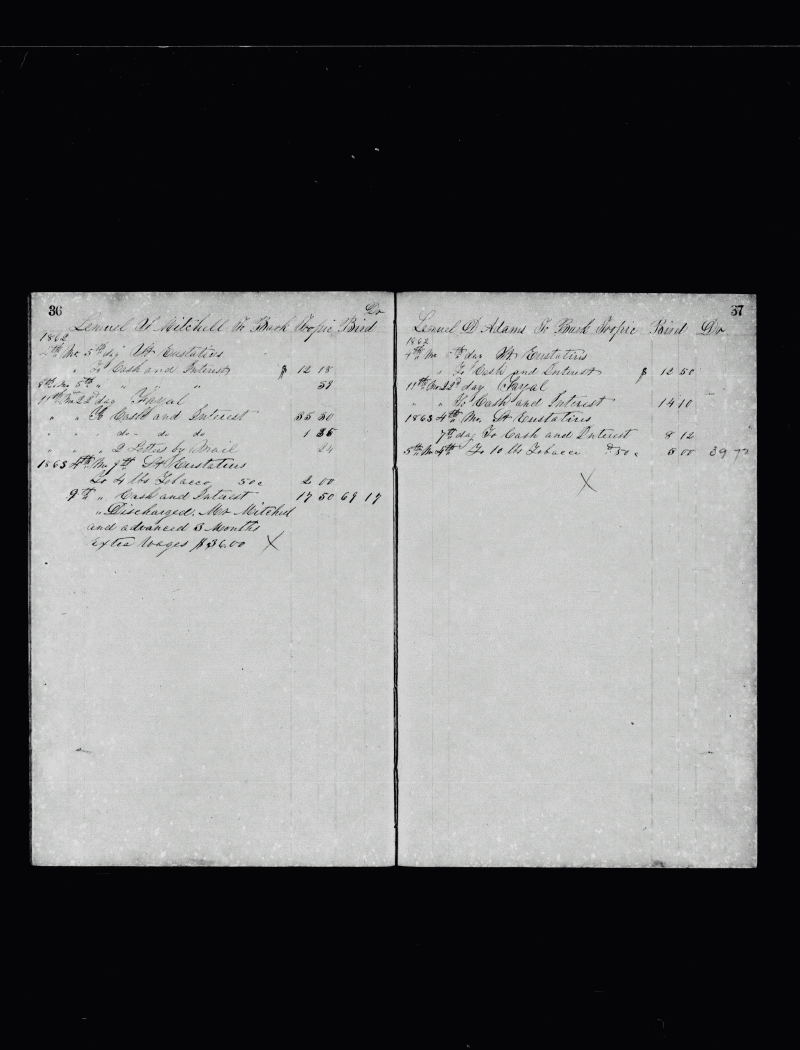 36
Dr
Lemuel S Mitchell To Bark Tropic Bird
1862
4th Mo. 5th day St Eustatius
" To Cash and Interest $ 12 18
8th Mo 5th " " " 59
11th Mo 22d day Fayal
" " To Cash and Interest 35 30
" " " do- do do 1 36
" " " 2 Letters by Mail 24
1863 4th Mo 7th St Eustatius
To 4 lbs Tobacco 50c 2 00
9th " Cash and Interest 17 50 69 17
" Discharged. Mr Mitchel
and advanced 3 Months
extra Wages $36.00 X
37
Lemuel D Adams To Bark Tropic Bird Dr
1862
4th Mo 5th day St Eustatius
" To Cash and Interest $ 12 50
11th Mo 22d day Fayal
" " To Cash and Interest 14 10
1863 4th Mo. St Eustatius
7th day To Cash and Interest 8 12
5th Mo 4th To 10 lbs Tobacco 50c 5 00 39 72
X